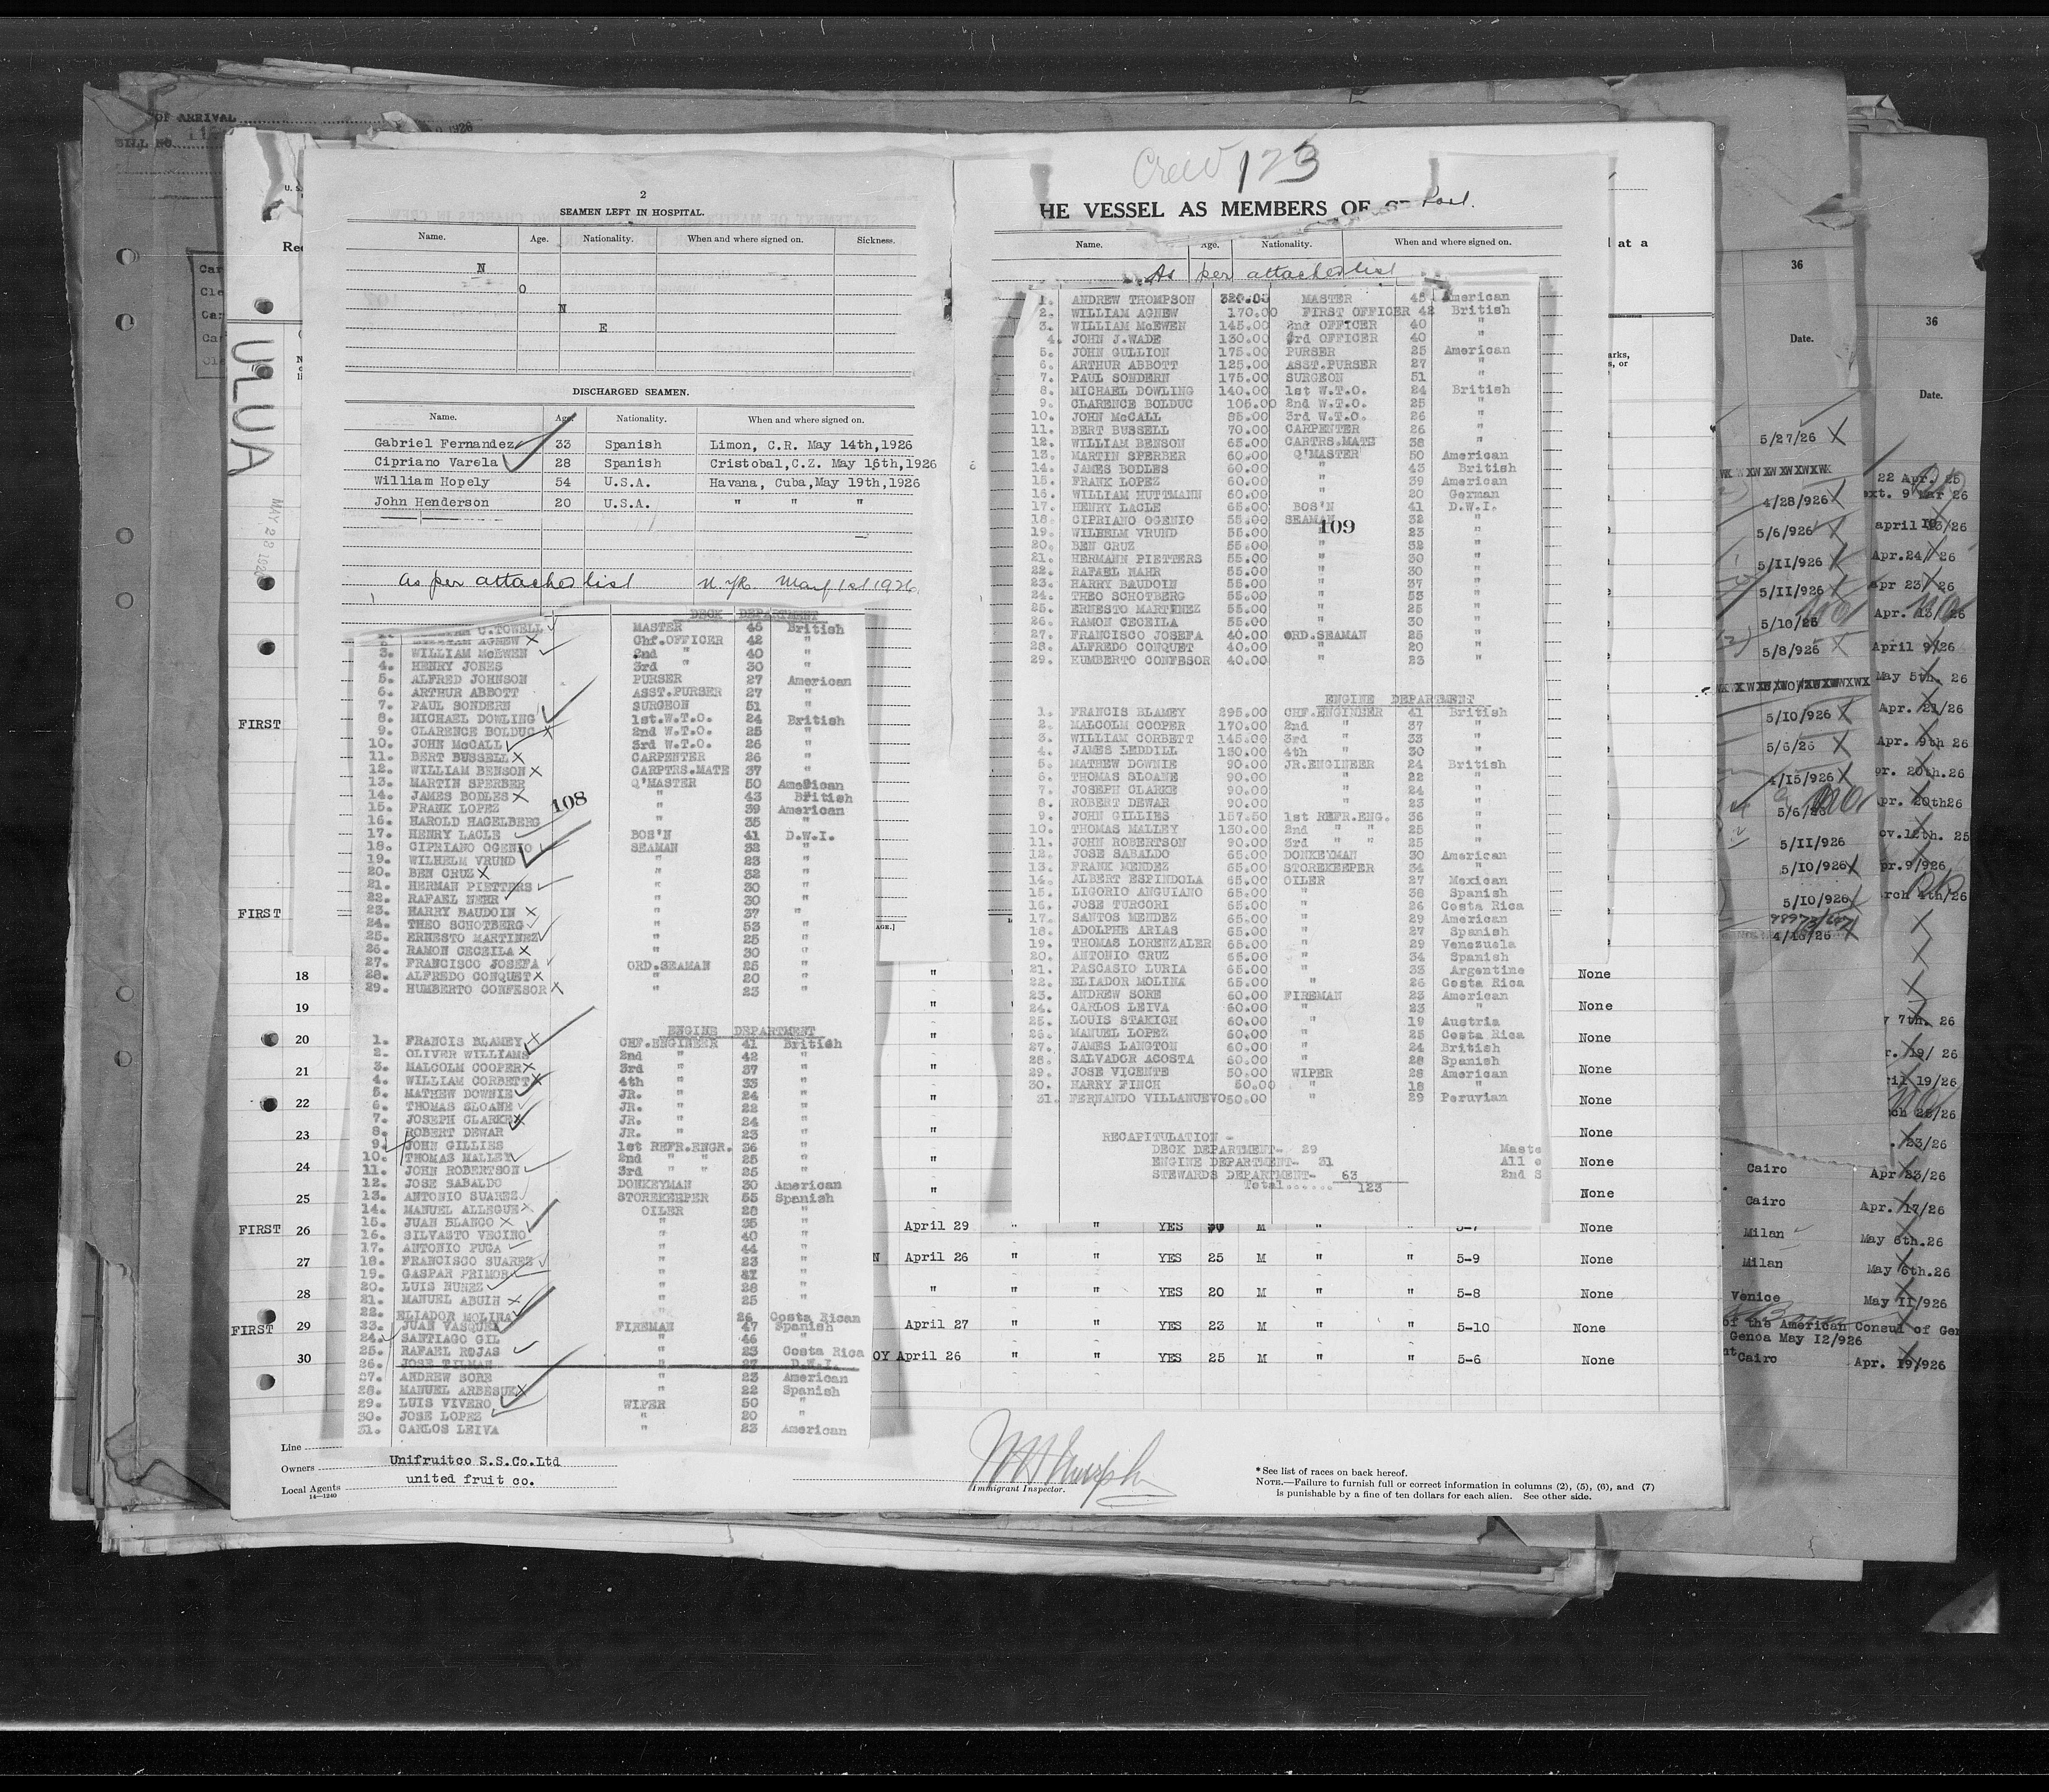 OF ARRIVAL
BILL NO.
ULUA
2
SEAMEN LEFT IN HOSPITAL.
Name. Age. Nationality. When and where signed on. Sickness.
N
O
N
E
DISCHARGED SEAMEN.
Name. Age. Nationality. When and where signed on.
Gabriel Fernandez 33 Spanish Limon, C.R. May 14th,1926
Cipriano Varela 28 Spanish Cristobal,C.Z. May 16th,1926
William Hopely 54 U.S.A. Havana, Cuba,May 19th,1926
John Henderson 20 U.S.A. " " "
as per attached list N.YK. May 1st 1926.
DECK DEPARTMENT
C.TOWELL MASTER 46 British
WILLIAM AGNEW Chf.OFFICER 42 "
3. WILLIAM McEWEN 2nd " 40 "
4. HENRY JONES 3rd " 30 "
5. ALFRED JOHNSON PURSER 27 American
6. ARTHUR ABBOTT ASST.PURSER 27 "
7. PAUL SONDERN SURGEON 51 "
8. MICHAEL DOWLING 1st.W.T.O. 24 British
9. CLARENCE BOLDUC 2nd W.T.O. 25 "
10. JOHN McCALL 3rd W.T.O. 26 "
11. BERT BUSSELL CARPENTER 26 "
12. WILLIAM BENSON CARPTRS.MATE 37 "
13. MARTIN SPERBER Q'MASTER 50 American
14. JAMES BODLES " 43 British
15. FRANK LOPEZ " 39 American
16. HAROLD HAGELBERG " 35 "
108
17. HENRY LACLE BOS'N 41 D.W.I.
18. CIPRIANO OGENIO SEAMAN 32 "
19. WILHELM VRUND " 23 "
20. BEN CRUZ " 32 "
21. HERMAN PIETTERS " 30 "
22. RAFAEL NEHR " 30 "
23. HARRY BAUDOIN " 37 "
24. THEO SCHOTBERG " 53 "
25. ERNESTO MARTINEZ " 25 "
26. RAMON CECEILA " 30 "
27. FRANCISCO JOSEFA ORD.SEAMAN 25 "
28. ALFREDO CONQUET " 20 "
29. HUMBERTO CONFESOR " 23 "
ENGINE DEPARTMENT
1. FRANCIS BLAMEY CHF.ENGINEER 41 British
2. OLIVER WILLIAMS 2nd " 42 "
3. MALCOLM COOPER 3rd " 37 "
4. WILLIAM CORBETT 4th " 33 "
5. MATHEW DOWNIE JR. " 24 "
6. THOMAS SLOANE JR. " 22 "
7. JOSEPH CLARKE JR. " 24 "
8. ROBERT DEWAR JR. " 23 "
9. JOHN GILLIES 1st REFR.ENGR. 36 "
10. THOMAS MALLEY 2nd " " 25 "
11. JOHN ROBERTSON 3rd " " 25 "
12. JOSE SABALDO DONKEYMAN 30 American
13. ANTONIO SUAREZ STOREKEEPER 55 Spanish
14. MANUEL ALLEGUE OILER 28 "
15. JUAN BLANCO " 35 "
16. SILVASTO VECINO " 40 "
17. ANTONIO PUGA " 44 "
18. FRANCISCO SUAREZ " 23 "
19. GASPAR PRIMOR "
20. LUIS NUNEZ " 28 "
21. MANUEL ABUIN " 25 "
22. ELIADOR MOLINA " 26 Costa Rican
23. JUAN VASQUEZ FIREMAN 47 Spanish
24. SANTIAGO GIL " 46 "
25. RAFAEL ROJAS " 23 Costa Rica
26. JOSE TILMAN " 27 D.W.I.
27. ANDREW SORE " 23 American
28. MANUEL ARBESUK " 22 Spanish
29. LUIS VIVERO WIPER 50 "
30. JOSE LOPEZ " 20 "
31. CARLOS LEIVA " 23 American
Crew 123
HE VESSEL AS MEMBERS OF
Name. Age. Nationality. When and where signed on.
As per attached list
1. ANDREW THOMPSON 320.00 MASTER 45 American
2. WILLIAM AGNEW 170.00 FIRST OFFICER 42 British
3. WILLIAM McEWEN 145.00 2nd OFFICER 40 "
4. JOHN J.WADE 130.00 3rd OFFICER 40 "
5. JOHN GULLION 175.00 PURSER 25 American
6. ARTHUR ABBOTT 125.00 ASST.PURSER 27 "
7. PAUL SONDERN 175.00 SURGEON 51 "
8. MICHAEL DOWLING 140.00 1st W.T.O. 24 British
9. CLARENCE BOLDUC 105.00 2nd W.T.O. 25 "
10. JOHN McCALL 85.00 3rd W.T.O. 26 "
11. BERT BUSSELL 70.00 CARPENTER 26 "
12. WILLIAM BENSON 65.00 CARTRS.MATE 38 "
13. MARTIN SPERBER 60.00 Q'MASTER 50 American
14. JAMES BODLES 60.00 " 43 British
15. FRANK LOPEZ 60.00 " 39 American
16. WILLIAM HUTTMANN 60.00 " 20 German
17. HENRY LACLE 65.00 BOS'N 41 D.W.I.
18. CIPRIANO OGENIO 55.00 SEAMAN 32 "
109
19. WILHELM VRUND 55.00 " 23 "
20. BEN CRUZ 55.00 " 32 "
21. HERMANN PIETTERS 55.00 " 30 "
22. RAFAEL NAHR 55.00 " 30 "
23. HARRY BAUDOIN 55.00 " 37 "
24. THEO SCHOTBERG 55.00 " 53 "
25. ERNESTO MARTINEZ 55.00 " 25 "
26. RAMON CECEILA 55.00 " 30 "
27. FRANCISCO JOSEFA 40.00 ORD.SEAMAN 25 "
28. ALFREDO CONQUET 40.00 " 20 "
29. KUMBERTO CONFESOR 40.00 " 23 "
ENGINE DEPARTMENT
1. FRANCIS BLAMEY 295.00 CHF.ENGINEER 41 British
2. MALCOLM COOPER 170.00 2nd " 37 "
3. WILLIAM CORBETT 145.00 3rd " 33 "
4. JAMES LEDDILL 130.00 4th " 30 "
5. MATHEW DOWNIE 90.00 JR.ENGINEER 24 British
6. THOMAS SLOANE 90.00 " 22 "
7. JOSEPH CLARKE 90.00 " 24 "
8. ROBERT DEWAR 90.00 " 23 "
9. JOHN GILLIES 157.50 1st REFR.ENG. 36 "
10. THOMAS MALLEY 130.00 2nd " " 25 "
11. JOHN ROBERTSON 90.00 3rd " " 25 "
12. JOSE SABALDO 65.00 DONKEYMAN 30 American
13. FRANK MENDEZ 65.00 STOREKEEPER 34 "
14. ALBERT ESPINDOLA 65.00 OILER 27 Mexican
15. LIGORIO ANGUIANO 65.00 " 38 Spanish
16. JOSE TURCORI 65.00 " 26 Costa Rica
17. SANTOS MENDEZ 65.00 " 29 American
18. ADOLPHE ARIAS 65.00 " 27 Spanish
19. THOMAS LORENZALER 65.00 " 29 Venezuela
20. ANTONIO CRUZ 65.00 " 34 Spanish
21. PASCASIO LURIA 65.00 " 33 Argentine
22. ELIADOR MOLINA 65.00 " 26 Costa Rica
23. ANDREW SORE 60.00 FIREMAN 23 American
24. CARLOS LEIVA 60.00 " 23 "
25. LOUIS STAKICH 60.00 " 19 Austria
26. MANUEL LOPEZ 60.00 " 25 Costa Rica
27. JAMES LANGTON 60.00 " 24 British
28. SALVADOR ACOSTA 60.00 " 28 Spanish
29. JOSE VICENTE 50.00 WIPER 28 American
30. HARRY FINCH 50.00 " 18 "
31. FERNANDO VILLANUEVO 50.00 " 29 Peruvian
RECAPITULATION -
DECK DEPARTMENT- 29 Maste
ENGINE DEPARTMENT- 31 All o
STEWARDS DEPARTMENT- 63 2nd S
Total...... 123
FIRST
FIRST
18 " None
19 " None
20 " None
21 " None
22 " None
23 " None
24 " None
25 " None
FIRST 26 April 29 " " YES M " " 5-7 None
27 N April 26 " " YES 25 M " " 5-9 None
28 " " " YES 20 M " " 5-8 None
FIRST 29 April 27 " " YES 23 M " " 5-10 None
30 OY April 26 " " YES 25 M " " 5-6 None
Line
Owners Unifruitco S.S.Co.Ltd
united fruit co.
Local Agents
14—1240
Immigrant Inspector.
* See list of races on back hereof.
NOTE.—Failure to furnish full or correct information in columns (2), (5), (6), and (7)
is punishable by a fine of ten dollars for each alien. See other side.
36
Date.
5/27/26
4/28/926
5/6/926
5/11/926
5/11/926
5/10/26
5/8/926
5/10/926
5/6/26
4/15/926
5/6/26
5/11/926
5/10/926
5/10/926
4/16/26
36
Date.
22 Apr. 25
ext. 9 Mar 26
Apr.24/ 26
apr 23/ 26
Apr. 13/ 26
April 9/26
May 5th. 26
Apr. 21/26
Apr. 9th 26
pr. 20th.26
pr. 20th26
ov.12th. 25
pr.9/926
rch 4th/26
y 7th. 26
r. 19/ 26
ril 19/26
. 23/26
Cairo Apr 23/26
Cairo Apr. 17/26
Milan May 6th.26
Milan May 6th.26
Venice May 11/926
of the American Consul of Gen
Genoa May 12/926
Cairo Apr. 19/926